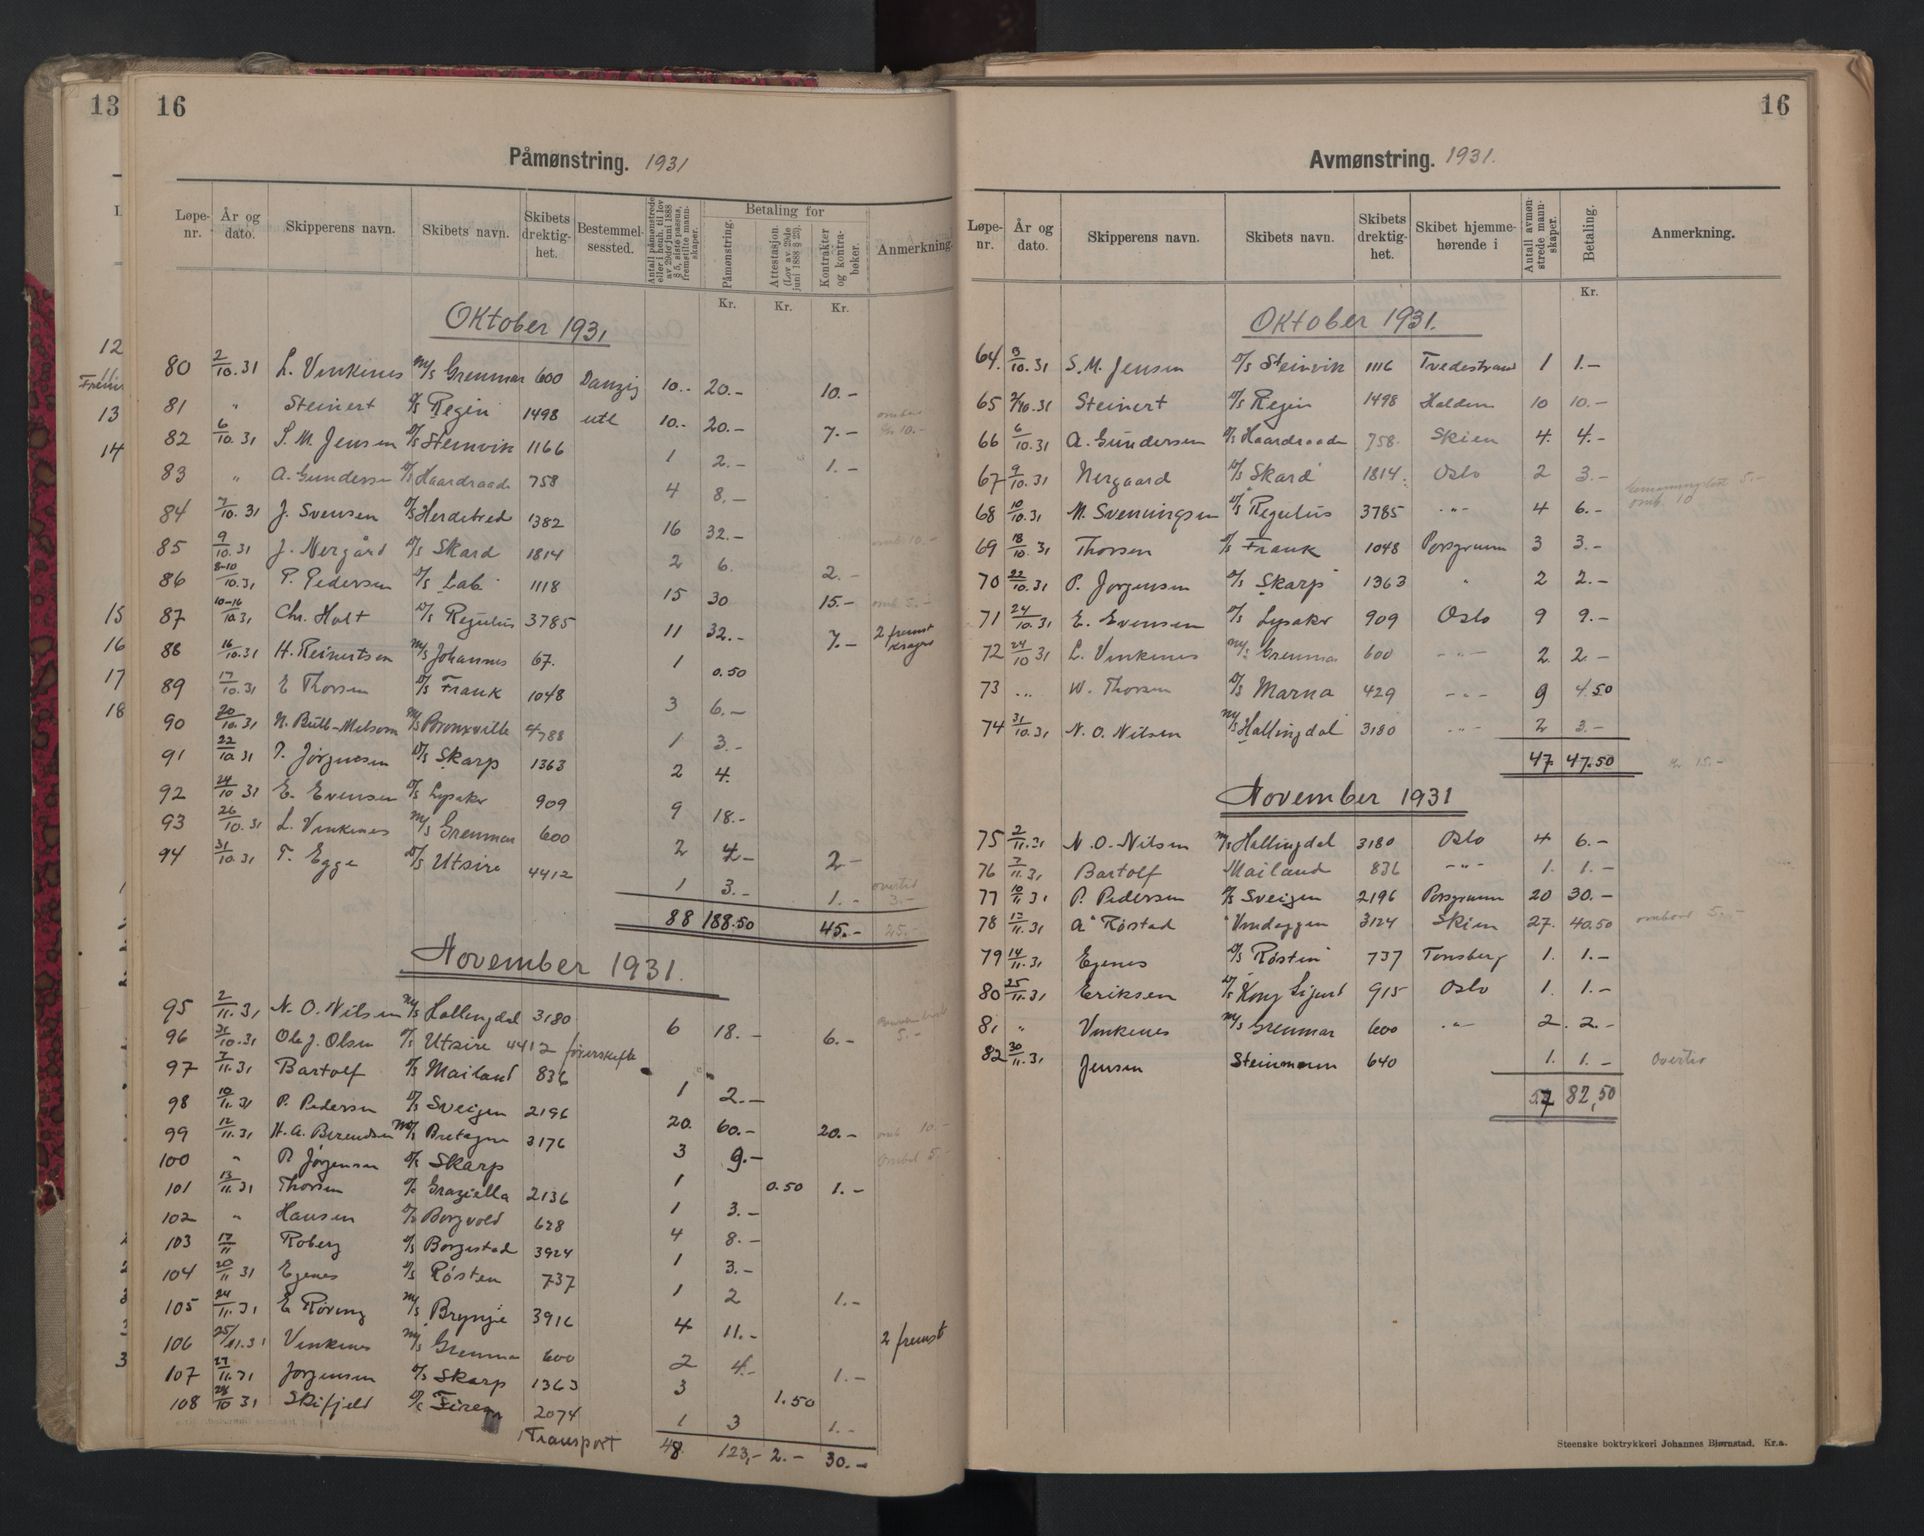 16
Påmønstring. 1931
Løpe-nr. | År og dato. | Skipperens navn. | Skibets navn. | Skibets drektig-het. | Bestemmel-sessted. | Antall påmønstrede eller i henh. til lov av 29de juni 1888 § 5, siste passus, fremstilte mann-skaper. | Betaling for | Påmønstring. Kr. | Attestasjon. (Lov av 29de juni 1888 § 25). Kr. | Kontrakter og kontra-bøker. Kr. | Anmerkning
Oktober 1931
80 2/10.31 L. Vinkenes M/S Grenmar 600 Danzig 10.- 20.- 10.-
81 " Steinert D/S Regin 1498 utl 10.- 20.- 7.-
82 6/10.31 S. M. Jensen D/S Steinvik 1166 1 2.- 1.-
83 " A. Gunderse D/S Haardraade 758 4 8.-
84 7/10.31 J. Svensen D/S Herdebred 1382 16 32.- omb 10.-
85 9/10.31 J. Nergård D/S Skard 1814 2 6. 2.-
86 8-10/10.31 P. Pedersen D/S Lab 1118 15 30 15.- omb 5.-
87 10-16/10.31 Chr. Holt D/S Regulus 3785 11 32.- 7.- 2 fremst
88 16/10.31 H. Reinertsen M/S Johannes 67. 1 0.50
89 17/10.31 E Thorsen D/S Frank 1048 3 6.-
90 20/10.31 N. Bull-Melsom M/S Bronxville 4788 1 3.-
91 22/10 31 P. Jørgensen D/S Skarp 1363 2 4.
92 24/10 31 E. Evensen D/S Lysaker 909 9 18.-
93 26/10.31 L. Vinkenes M/S Grenmar 600 2 4- 2-
94 31/10.31 T. Egge D/S Utsire 4412 1 3.- 1.- overtid 3.-
88 188.50 45.- 25.-
November 1931.
95 2/11.31 N. O. Nilsen M/S Hallingdal 3180 6 18.- 6.- 5.-
96 31/10.31 Ole J. Olsen D/S Utsire 4412 førerskifte
97 7/11.31 Bartolf D/S Mailand 836 1 2.-
98 10/11.31 P. Pedersen D/S Sveigen 2196 20. 60.- 20.- omb 10.-
99 12/11.31 H. A. Berendsen M/S Bretagne 3176 3 9.- Ombd 5.-
100 " P Jørgensen D/S Skarp 1 0.50 1.-
101 13/11.31 Thorsen D/S Graziella 2136 1 3.-
102 " Hansen D/S Borgvold 628 4 8.-
103 17/11 Roberg D/S Borgestad 3924 1 3.-
104 20/11 31 Egenes D/S Røsten 737 1 2 1.-
105 24/11.31 E Røving M/S Brynje 3916 4 11.- 2 fremst
106 25/11.31 Vinkenes M/S Grenmar 600 2 4.- 1.-
107 27/11.31 Jørgensen D/S Skarp 1363 3 1.50
108 28/10 31 Skifjeld D/S 2074 1 3 1.-
Transport 48. 123,- 2.- 30.-
16
Avmønstring. 1931.
Løpe-nr. | År og dato. | Skipperens navn. | Skibets navn. | Skibets drektig-het. | Skibet hjemme-hørende i | Antall avmøn-strede mann-skaper. | Betaling. Kr. | Anmerkning.
Oktober 1931.
64. 3/10.31 S. M. Jensen D/S Steinvik 1116 Tvedestrand 1 1.-
65 2/10.31 Steinert D/S Regin 1498 Halden 10 10.-
66 6/10.31 A. Gundersen D/S Haardraade 758. Skien 4. 4.-
67 9/10.31 Nergaard D/S Skard 1814. Oslo 2 3.-
68 10/10.31 M. Svenningsen D/S Regulus 3785 -"- 4 6.- omb 10
69 18/10.31 Thorsen D/S Frank 1048 Porsgrunn 3 3.-
70 22/10.31 P. Jørgensen D/S Skarp 1363 " 2 2.-
71 24/10.31 E. Evensen D/S Lysaker 909 Oslo 9 9.-
72 24/10 31 L. Vinkenes M/S Grenmar 600 -"- 2 2.-
73 " W. Thorsen D/S Marna 429 -"- 9 4.50
74 31/10.31 N. O. Nilsen M/S Hallingdal 3180 -"- 2 3.-
47. 47.50 kr 15.-
November 1931
75 2/11.31 N. O. Nilsen M/S Hallingdal 3180 Oslo 4 6.-
76 7/11.31 Bartolf Mailand 836 -"- 1. 1.-
77 10/11 31 P. Pedersen D/S Sveigen 2196 Porsgrunn 20 30.-
78 13/11.31 A Røstad " Vindeggen 3124 Skien 27. 40.50 ombord 5.-
79 14/11.31 Egenes D/S Røsten 737 Tønsberg 1. 1.-
80 25/11.31 Eriksen D/S Kong Sigurd 915 Oslo 1. 1.-
81 " Vinkenes M/S Grenmar 600 -"- 2. 2.-
82 30/11.31 Jensen Steinmann 640 1. 1.- Overtid
57 82,50
Steenske boktrykkeri Johannes Bjørnstad. Kr.a.
13
12
13
14
15
16
17
18